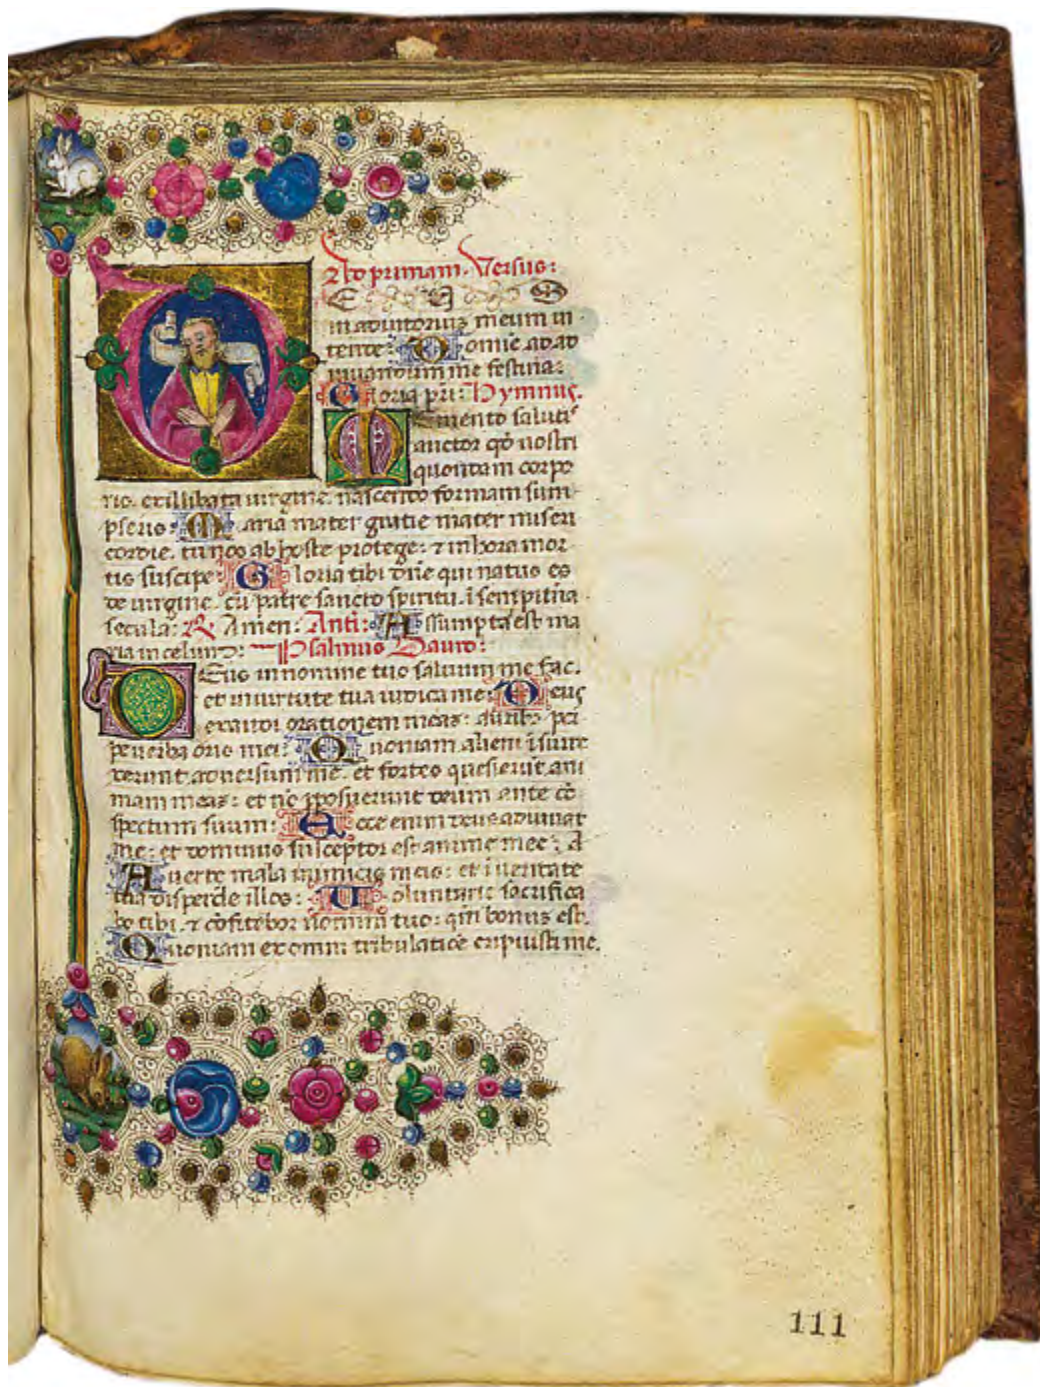 Ad primam. Versus:
D E U S
in adiutoriuz meum in
tende: Domie ad ad
iuuandum me festina:
Gloria pri: Hymnus.
Memento saluti
auctor qd nostri
quondam corpo
ris. ex illibata uirgine. nascendo formam sum
pseris: Maria mater gratie mater miseri
cordie. tu nos ab hoste protege: ⁊ in hora mor
tis suscipe: Gloria tibi dne qui natus es
de uirgine. cu patre sancto spiritu. i sempitna
secula: R Amen: Anti: Assumpta est ma
ria in celum: Psalmus Dauid:
Deus in nomine tuo saluum me fac.
et in uirtute tua iudica me: Deus
exaudi orationem meaz: auribz per
pe uerba oris mei: Quoniam alieni isurre
xerunt aduersum me. et fortes quesierut ani
mam meaz: et no pposuerunt deum ante co
spectum suum: Ecce enim deus adiuuat
me: et dominus susceptor est anime mee: A
Auerte mala inimicis meis: et i ueritate
tua disperde illos: Uoluntarie sacrifica
bo tibi. ⁊ cofitebor nomini tuo: qm bonus est.
Quoniam ex omni tribulatioe eripuisti me.
111